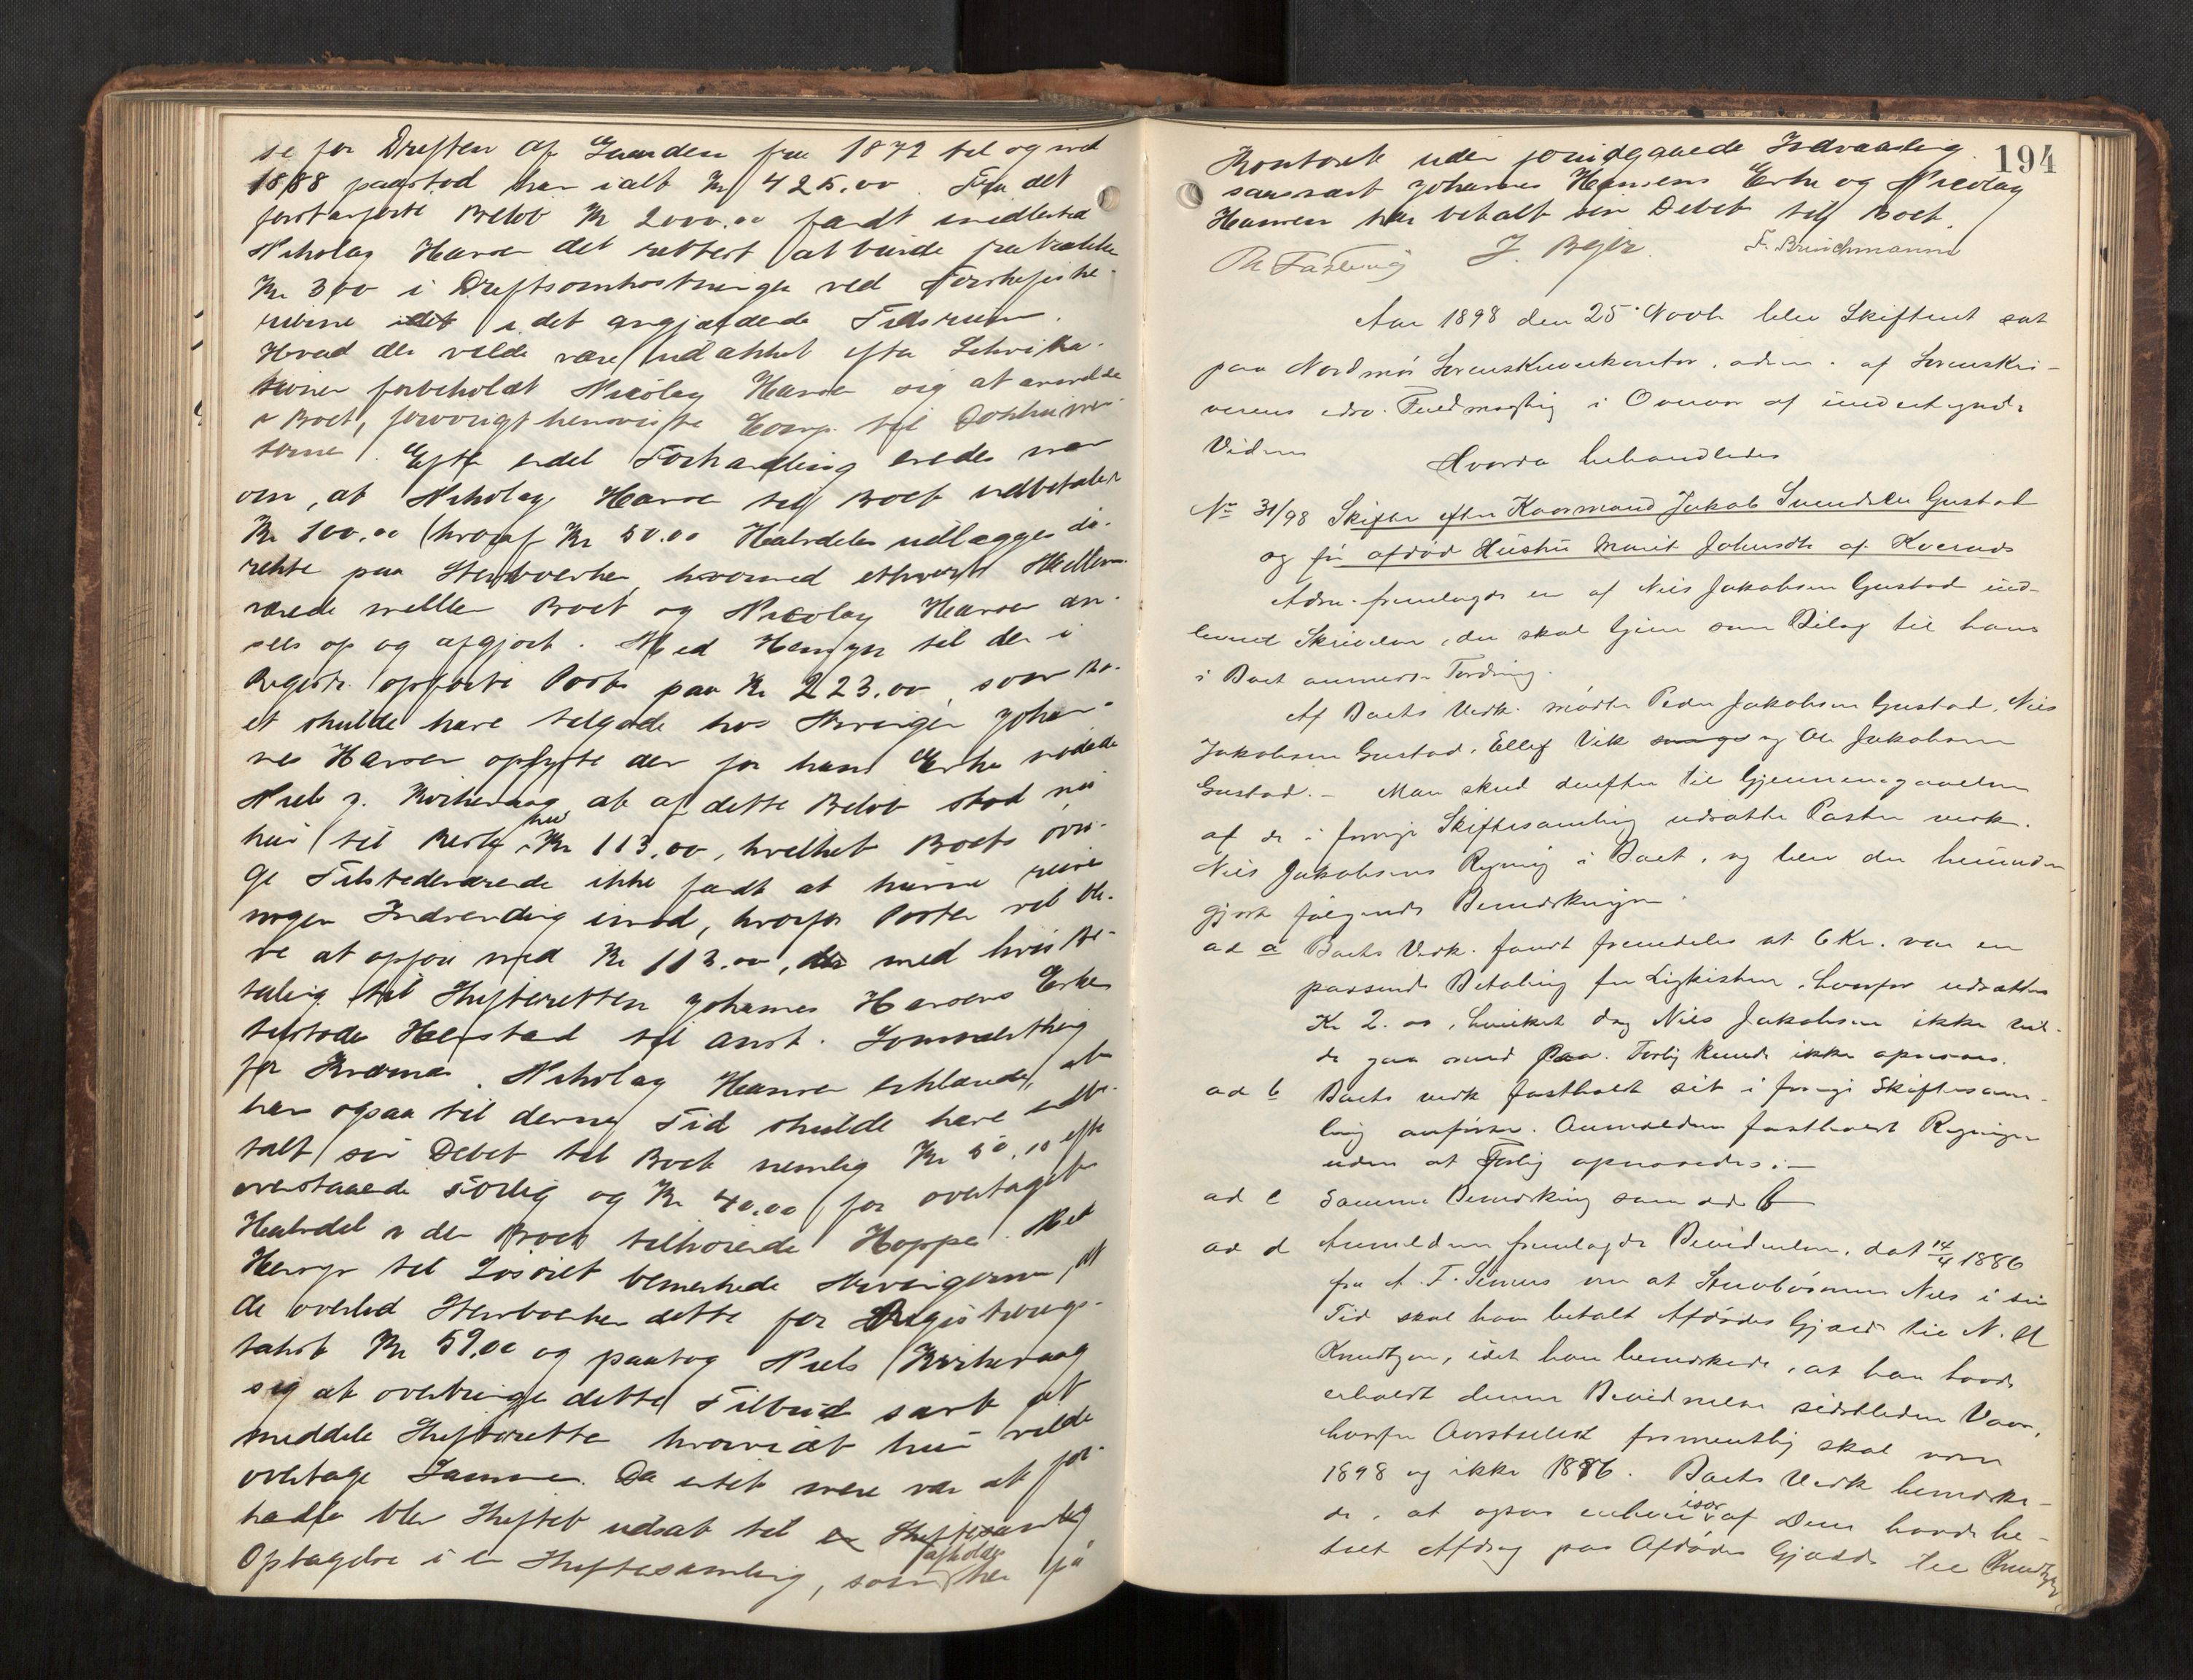 se for Driften af Gaarden fra 1872 til og med
1888 paastod han ialt Kr 425.00. Fra det
først anførte Beløb Kr 2000.00 fandt imidlertid
Nikolay Hansen det rettest at burde fratrække
Kr 300 i Driftsomkostninger ved Torskefiske-
rierne idet i det angjældende Tidsrum.
Hvad der vilde være udtakket efter
forbeholdt Nicolay Hansen sig at anmelde
i Boet, forøvrigt henviste Comp. til
Efter endel Forhandling enedes man
om, at Nikolay Hansen til Boet udbetaler
Kr 100.00 (hvoraf Kr 50.00 Halvdelen udlægges di-
rekte paa Stervboenken, hvormed ethvert Mellem-
værende mellem Boet og Nicolay Hansen an-
sees op og afgjort. Med Hensyn til den i
Registr. opførte Post paa Kr 223.00 som Bo-
et skulde have tilgode hos Arvingen Johan-
nes Hansen oplyste den for hans Enke mødende
Niels J. Kirkevaag at af dette Beløb stod nu
kun til Rest hos Kr 113.00, hvilket Boets øvri-
ge Tilstedeværende ikke fandt at kunne reise
nogen Indvending imod, hvorfor Posten vil bli-
ve at opføre med Kr 113.00, der med hvis Be-
taling til Skifteretten Johannes Hansens Enke
tilstodes Henstand til Aarst. Sommerthing
for Kvernes. Nikolay Hansen erklærede, at
han ogsaa til denne Tid skulde have udbe-
talt sin Debet til Boet nemlig Kr 50.00 efter
ovenstaaende Forlig og Kr 40.00 for overtaget
Halvdel i den Boet tilhørende Hoppe. Med
Hensyn til Løsøret bemerkede Arvingerne, at
de overlod Stervboenken dette for Registrerings-
takst Kr 59.00 og paatog Niels Kirkevaag
sig at overbringe dette Tilbud samt at
meddele Skifteretten hvorvidt hun vilde
overtage Samme. Da intet mere var at for-
handle blev Skiftet udsat til en Skiftesamling
Optagelse i en Skiftesamling, som afholdes her på
194
Kontoret uden foruidgaaede Indvarsling
saasnart Johannes Hansens Enke og Nicolay
Hansen har betalt sin Debet til Boet.
J. Bejer. F. Brinchmann
Aar 1898 den 25 Novbr blev Skifteret sat
paa Nordmør Sorenskriverkontor, adm. af Sorenskri-
verens edsv. Fuldmægtig i Overvær af undertegnede
Vidner
Hvorda behandledes
No 31/98 Skifte efter Kaarmand Jakob Svendsen Gustad
og før afdød Hustru Marit Johnsdtr af Kvernes
Adm. fremlagde en af Niels Jakobsen Gustad ind-
levered Skrivelse, der skal tjene som Bilag til hans
i Boet anmeldte Fordring.
Af Boets Vedk. mødte Peder Jakobsen Gustad, Niels
Jakobsen Gustad, Ellef Vik samt og Ole Jakobsen
Gustad. - Man skred derefter til Gjennemgaaelsen
af de i forrige Skiftesamling udsatte Poster vedk.
Niels Jakobsens Regning i Boet, og blev der herunder
gjort følgende Bemærkninger.
ad a Boets Vedk. fandt fremdeles at 6 Kr. var en
passende Betaling for Ligkisten, hvorfor udsættes
Kr 2.00, hvilket dog Niels Jakobsen ikke vil-
de gaa med paa. Forlig kunde ikke opnaaes.
ad b Boets vedk fastholdt sit i forrige Skiftesam-
ling anførte. Anmelderen fastholdt Regningen
uden at Forlig opnaaedes: -
ad c Samme Bemærkning som ad b
ad d Anmelderen fremlagde Bevidnelse, dat 14/4 1886
fra A. F. Simers om at Stervbosønnen Niels i sin
Tid skal have betalt Afdødes Gjæld til N. H
Knudtzon, idet han bemærkede, at han havde
erholdt denne Bevidnelse sidstleden Vaar,
hvorfor Aarstallet formentlig skal være
1898 og ikke 1886. Boets Vedk bemærke-
de, at ogsaa enhver især af Dem havde be-
talt Afdrag paa Afdødes Gjæld til Knudtzon